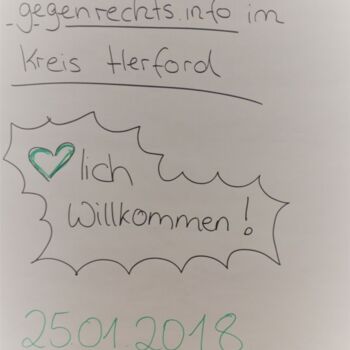 gegenrechts.info im
Kreis Herford
lich
Willkommen!
25.01.2018